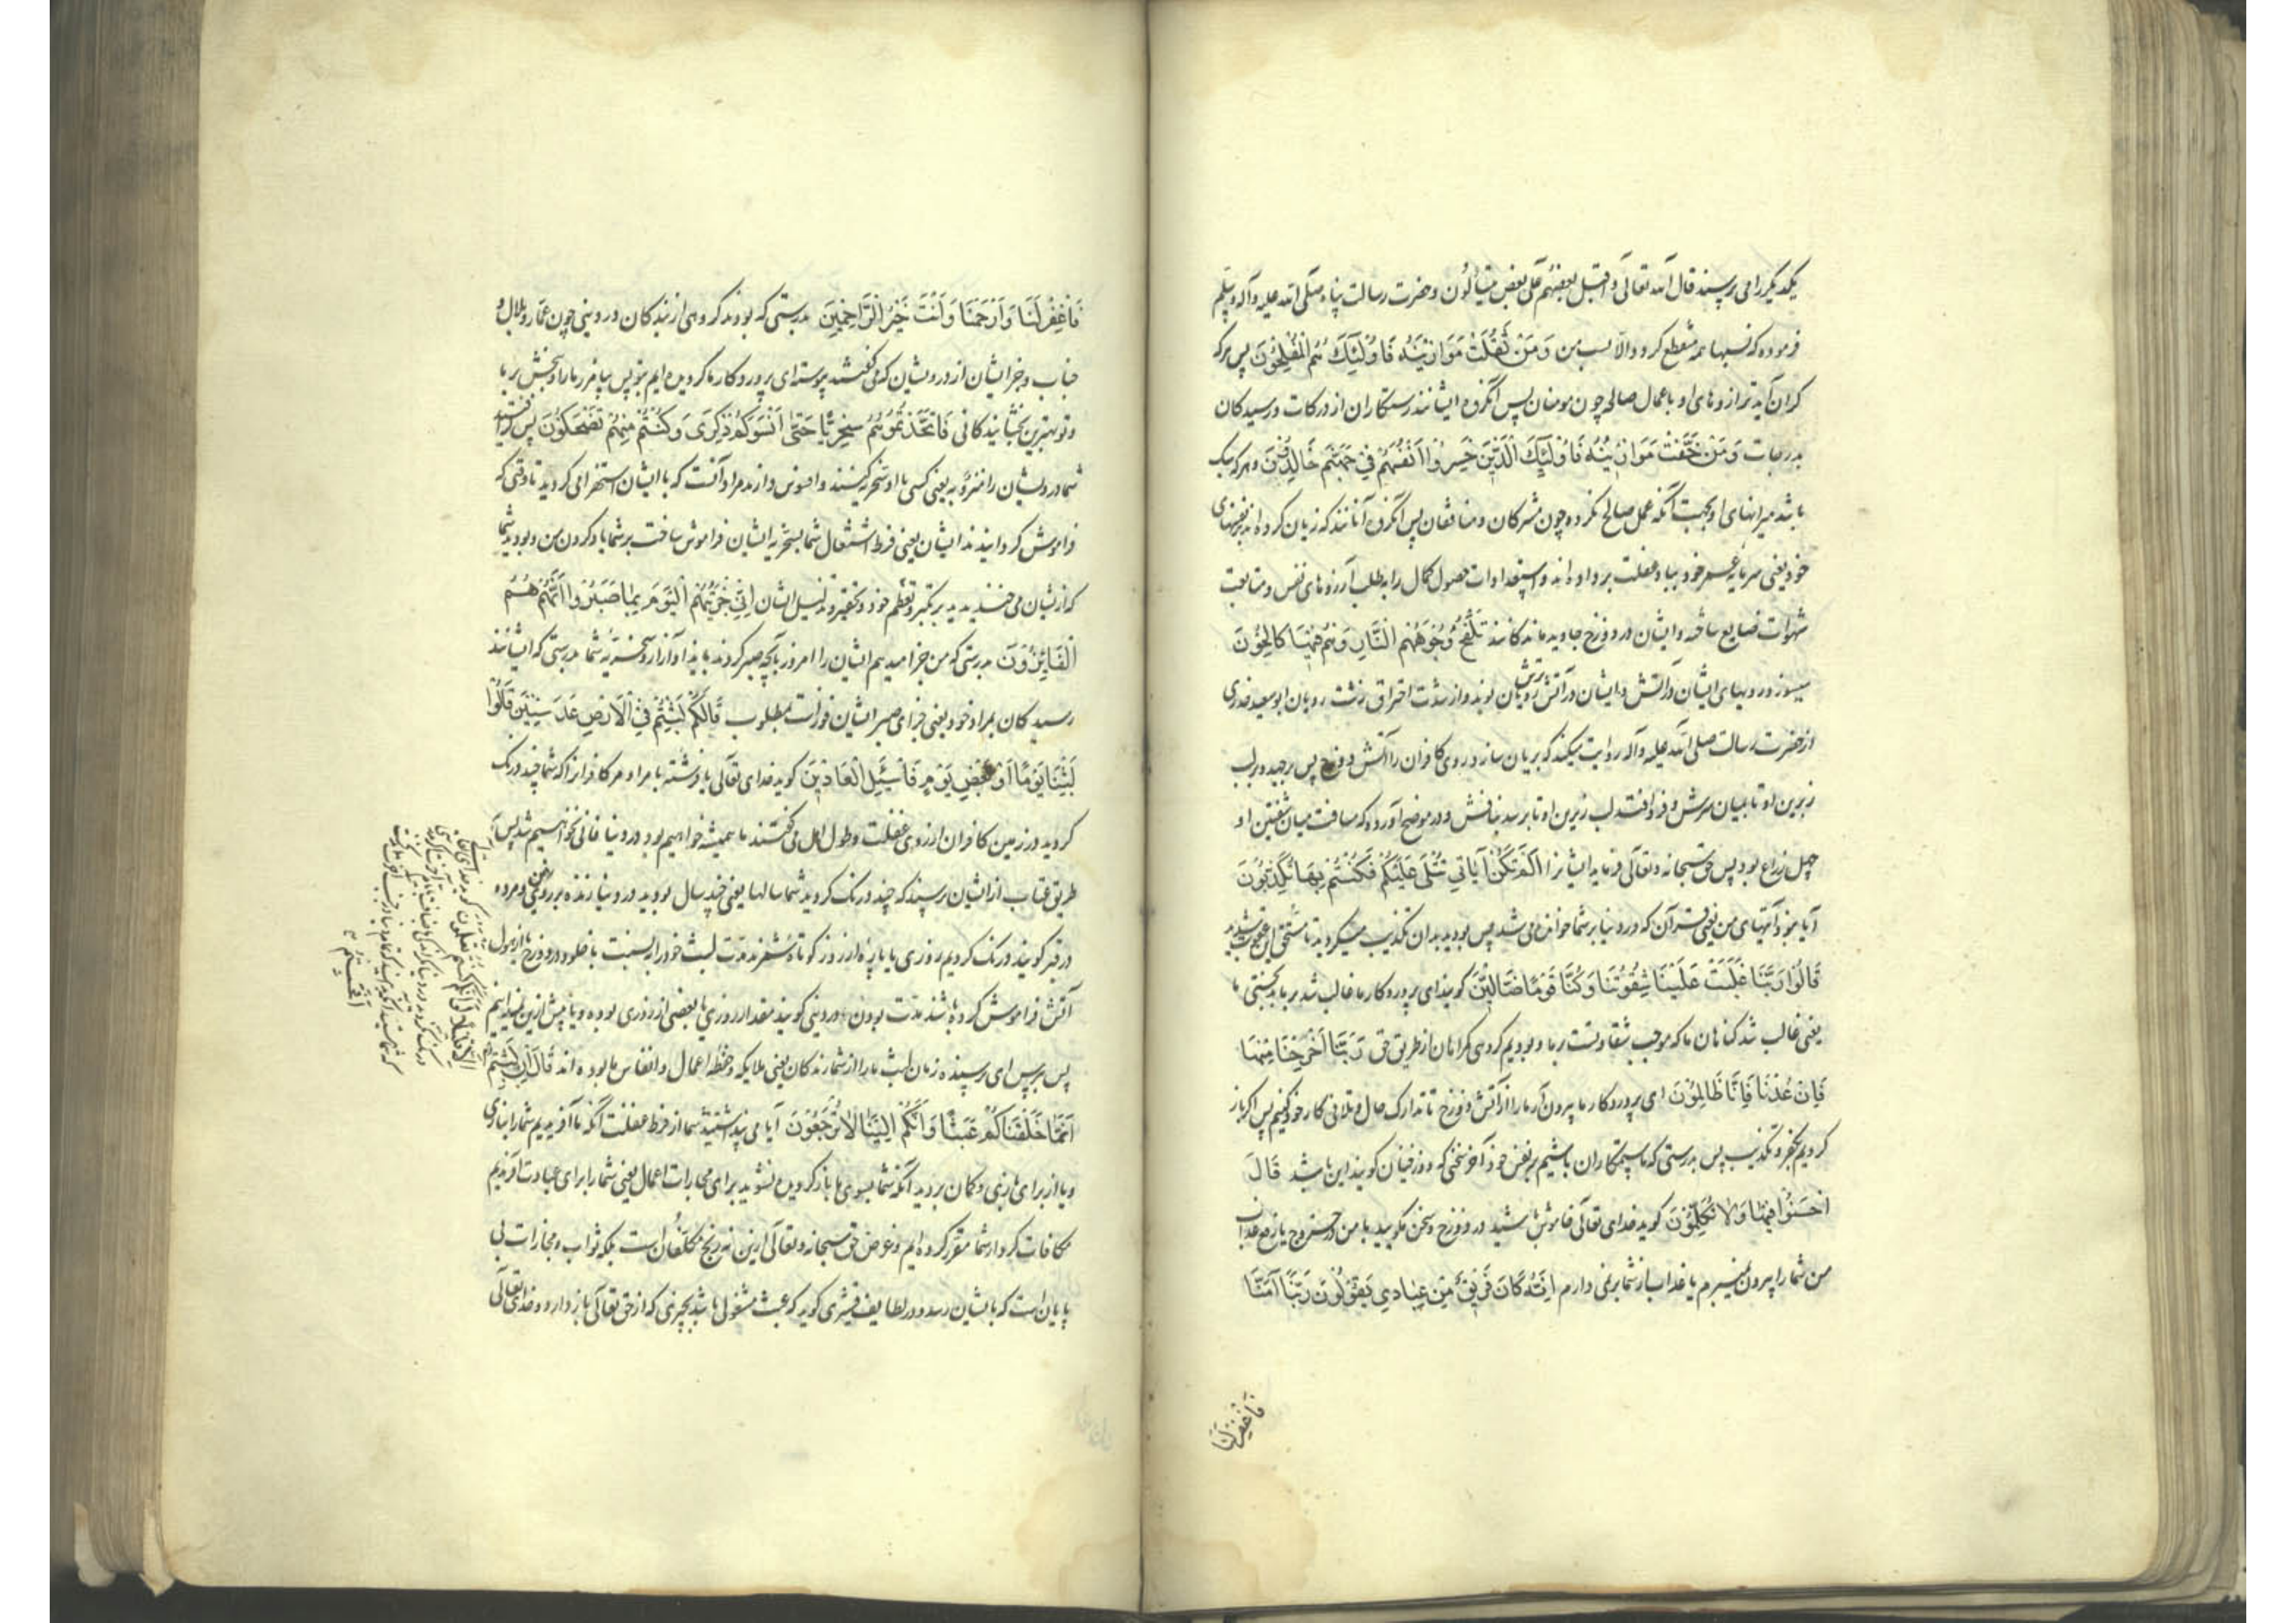 یکدیگر را می پرسند قال الله تعالی و اقبل بعضهم علی بعض یتسألون و حضرت رسالت پناه صلی الله علیه و آله و سلم
فرموده که نسبها همه منقطع گردد الا نسب من وَمَنْ ثَقُلَتْ مَوَازِینُهُ فَاُولٰئِکَ هُمُ الْمُفْلِحُونَ پس هر که
کران آید ترازوهای او باعمال صالحه چون مومنان پس آنگروه ایشانند رستکاران از درکات و رسیدکان
بدرجات وَمَنْ خَفَّتْ مَوَازِینُهُ فَاُولٰئِکَ الَّذِینَ خَسِرُوا اَنْفُسَهُمْ فِی جَهَنَّمَ خَالِدُونَ و هر که سبک
باشد میزانهای او بجهت آنکه عمل صالح نکرده چون مشرکان و منافقان پس آنگروه آنانند که زیان کرده اند بر نفسهای
خود یعنی سرمایه عمر خود بباد غفلت برداده اند و استعدادات حصول کمال را به طلب آرزوهای نفس و متابعت
شهوات ضایع ساخته و ایشان در دوزخ جاوید ماندکانند تَلْفَحُ وُجُوهَهُمُ النَّارُ وَهُمْ فِیهَا کَالِحُونَ
میسوزد رویهای ایشان را آتش و ایشان در آتش ترش رویان بوند و از شدت احتراق زشت رویان ابو سعید خدری
از حضرت رسالت صلی الله علیه و آله روایت میکند که بریان سازد روی کافران را آتش دوزخ پس برجهد بر لب
زبرین او تا بمیان سرش و فرو افتد لب زیرین او تا برسد بنافش و در موضح آورده که مسافت میان شفتین او
چهل زراع بود پس حق سبحانه و تعالی فرماید ایشانرا اَلَمْ تَکُنْ آیَاتِی تُتْلَی عَلَیْکُمْ فَکُنْتُمْ بِهَا تُکَذِّبُونَ
آیا نبود آیتهای من یعنی قرآن که در دنیا بر شما خوانده می شد پس بودید بدان تکذیب میکردید تا مستحق این عقوبت شدید
قَالُوا رَبَّنَا غَلَبَتْ عَلَیْنَا شِقْوَتُنَا وَکُنَّا قَوْمًا ضَالِّینَ کویند ای پروردکار ما غالب شد بر ما بدبختی ما
یعنی غالب شد کناهان ما که موجب شقاوتست بر ما و بودیم کروهی کمراهان از طریق حق رَبَّنَا اَخْرِجْنَا مِنْهَا
فَاِنْ عُدْنَا فَاِنَّا ظَالِمُونَ ای پروردکار ما بیرون آر ما را از آتش دوزخ تا تدارک حال و تلافی کار خود کنیم پس اکر باز
کردیم بکفر و تکذیب پس بدرستی که ما ستمکاران باشیم بر نفس خود آخر سخنی که دوزخیان کویند این باشد قَالَ
اخْسَئُوا فِیهَا وَلَا تُکَلِّمُونِ کوید خدای تعالی خاموش باشید در دوزخ و سخن مکویید با من در خروج یا رفع عذاب
من شما را بیرون نمیبرم یا عذاب از شما برنمی دارم اِنَّهُ کَانَ فَرِیقٌ مِنْ عِبَادِی یَقُولُونَ رَبَّنَا آمَنَّا
فَاغْفِرْ لَنَا
فَاغْفِرْ لَنَا وَارْحَمْنَا وَاَنْتَ خَیْرُ الرَّاحِمِینَ بدرستی که بودند کروهی از بندکان در دینی چون عمار و بلال و
خباب و جز ایشان از درویشان که می کفتند پیوسته ای پروردکار ما کرویده ایم بتو پس بیامرز ما را و ببخش بر ما
و تو بهترین بخشایندکانی فَاتَّخَذْتُمُوهُمْ سِخْرِیًّا حَتّٰی اَنْسَوْکُمْ ذِکْرِی وَکُنْتُمْ مِنْهُمْ تَضْحَکُونَ پس فراکرفتید
شما درویشان را مهزوبه یعنی کسی با او سخریه کنند و افسوس دارند مراد آنست که با ایشان استهزا می کردید تا وقتی که
فراموش کردانیدند ایشان یعنی فرط اشتغال شما بسخریه ایشان فراموش ساخت بر شما یاد کردن من و بودید شما
که از یشان می خندیدید بر تکبر و تعظم خود و تحقیر و تذلیل ایشان اِنِّی جَزَیْتُهُمُ الْیَوْمَ بِمَا صَبَرُوا اَنَّهُمْ هُمُ
الْفَائِزُونَ بدرستی که من جزا میدهم ایشان را امروز بآنچه صبر کردند بایذا و آزار و سخریه شما بدرستی که ایشانند
رسیدکان بمراد خود یعنی جزای صبر ایشان فوزست بمطلوب قَالَ کَمْ لَبِثْتُمْ فِی الْاَرْضِ عَدَدَ سِنِینَ قَالُوا
لَبِثْنَا یَوْمًا اَوْ بَعْضَ یَوْمٍ فَاسْئَلِ الْعَادِّینَ کوید خدای تعالی یا فرشته بامر او مر کافرانرا که شما چند درنک
کردید در زمین کافران از روی غفلت و طول امل می کفتند ما همیشه خواهیم بود و در دنیا فانی نخواهیم شد پس
طریق عتاب از ایشان پرسند که چند درنک کردید شما سالها یعنی چند سال بودید در دنیا زنده بر روی زمین و مرده
در قبر کویند درنک کردیم روزی یا پاره از روز کوتاه شمرند مدت لبث خود را به نسبت با خلود در دوزخ یا از هول
آتش فراموش کرده باشند مدت بودن در دینی کویند مقدار روزی یا بعضی از روزی بوده و یا پیش ازین نمیدانیم
پس بپرس ای پرسنده زمان لبث ما را از شمارندکان یعنی ملایکه و حفظه اعمال و انفاس ما بوده اند قَالَ اِنْ لَبِثْتُمْ
اَنَّمَا خَلَقْنَاکُمْ عَبَثًا وَاَنَّکُمْ اِلَیْنَا لَا تُرْجَعُونَ آیا می پنداشتید شما از فرط غفلت آنکه ما آفریدیم شما را ببازی
و یا از برای بازی و کمان بردید آنکه شما بسوی ما باز کردیده نشوید برای مجازات اعمال یعنی شما را برای عبادت آفریدیم
مکافات کردار شما مقرر کرده ایم و غرض حق سبحانه و تعالی ازین نه رنج مکلفان است بلکه ثواب و مجازات بی
پایان است که بایشان رسد و در لطایف قشیری کوید که عبث مشغول باشد بچیزی که از حق تعالی باز دارد و خدای تعالی
اِلَّا قَلِیلًا لَوْ اَنَّکُمْ کُنْتُمْ تَعْلَمُونَ کوید خدای تعالی
اَفَحَسِبْتُمْ